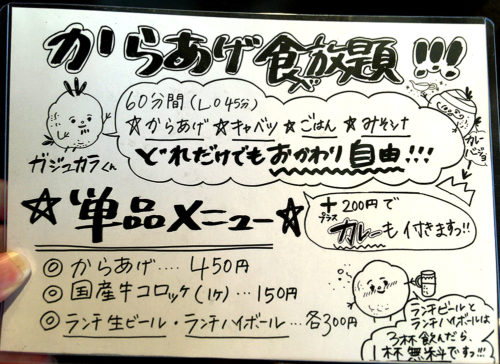 からあげ食べ放題!!!
60分間(L.O 45分)
☆からあげ☆キャベツ☆ごはん☆みそシル
どれだけでもおかわり自由!!!
ガジュカラくん
カレーパジョ
☆単品メニュー☆
+プラス200円で
カレーも付きますっ!!
◎からあげ‥‥450円
◎国産牛コロッケ(1ケ)…150円
◎ランチ生ビール・ランチハイボール…各300円
ランチビールと
ランチハイボールは
3杯飲んだら、